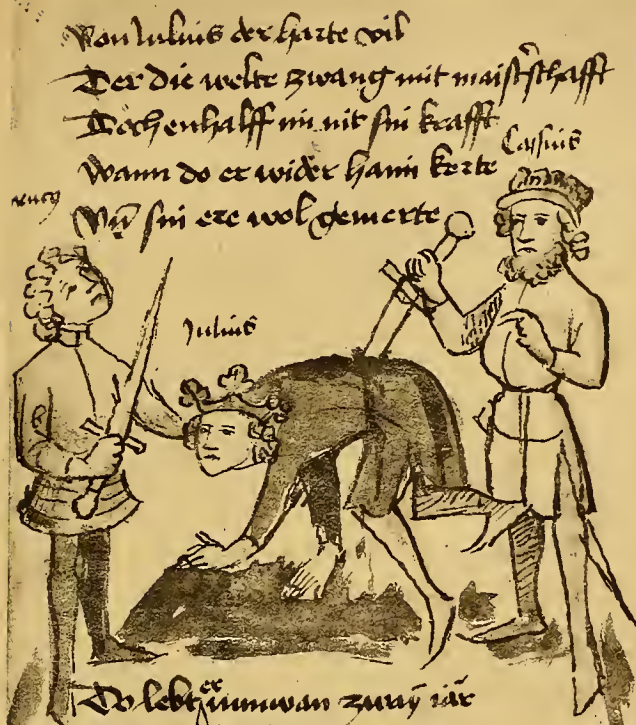 Von Iulius der harte vil
Der die welte zwang mit maisterschafft
Doch enhalff in nit sin krafft
Wann do er wider haim kerte
Cassius
Vn̄ sin ere wol gemerte
Iulius
Do lebt er nunwan zway iar